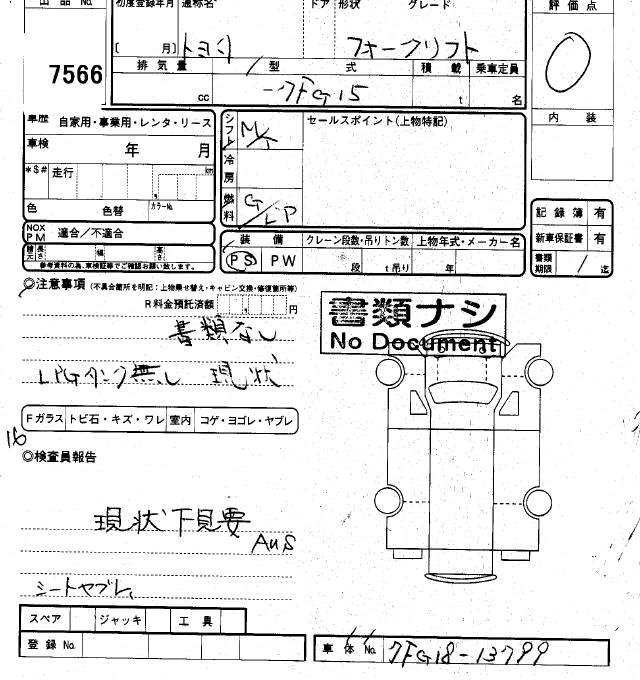 出品No.
初度登録年月 通称名 ドア 形状 グレード
評価点
[ 月]
トヨタ フォークリフト
7566
排気量 型式 積載 乗車定員
cc -7FG15 t 名
車歴 自家用・事業用・レンタ・リース
車検 年 月
*$# 走行 km
色 色替 カラーNo.
NOX PM 適合/不適合
積寸 長さ 幅 高さ
参考資料の為、車検証等でご確認お願い致します。
シフト M/T
冷房
燃料 G/LP
セールスポイント(上物特記)
装備 クレーン段数・吊りトン数 上物年式・メーカー名
PS PW 段 t吊り 年
内装
記録簿 有
新車保証書 有
書類期限 / 迄
◎注意事項 (不具合箇所を明記:上物乗せ替え・キャビン交換・修復箇所等)
R料金預託済額 円
書類なし
LPGタンク無し 現状
書類ナシ
No Document
Fガラス トビ石・キズ・ワレ 室内 コゲ・ヨゴレ・ヤブレ
16
◎検査員報告
現状下見要
AUS
シートヤブレ
スペア ジャッキ 工具
登録No.
車体No. 7FG18-13799